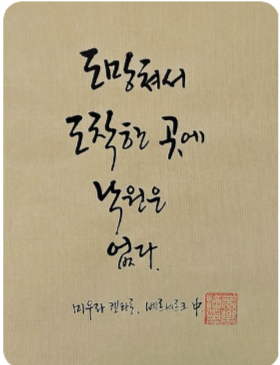 도망쳐서
도착한 곳에
낙원은
없다.
미우라 켄타로, 베르세르크 中